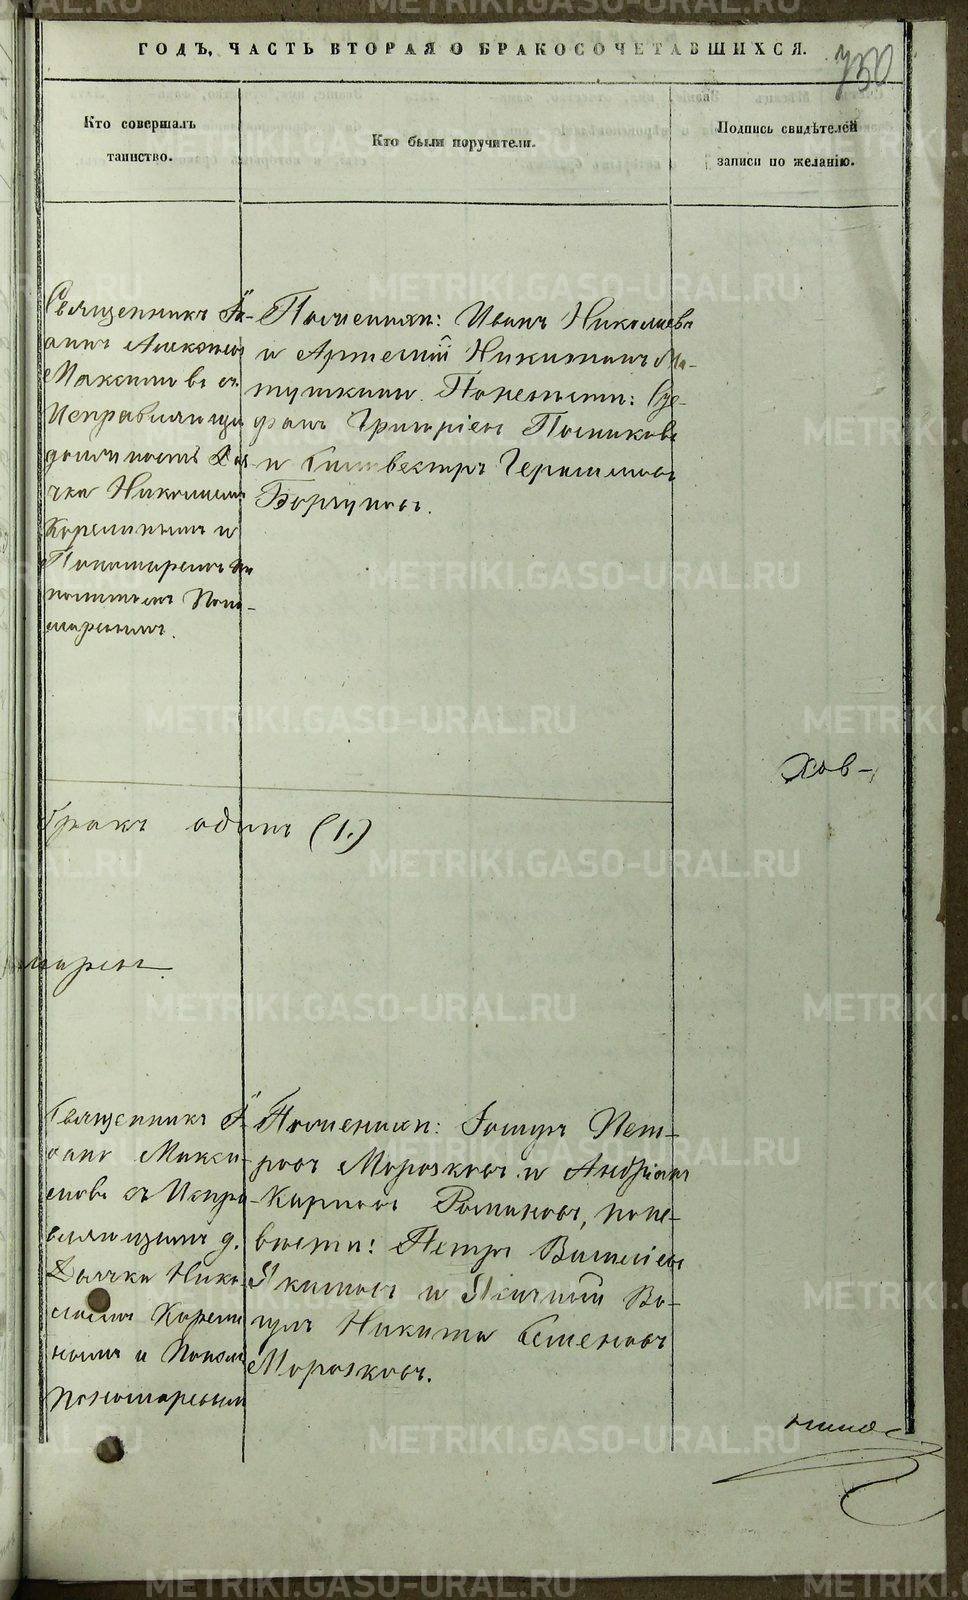 ГОДЪ, ЧАСТЬ ВТОРАЯ О БРАКОСОЧЕТАВШИХСЯ.
750
Кто совершалъ
таинство.
Кто были поручители.
Подпись свидѣтелей
записи по желанію.
Священникъ Іо-
аннъ Алексѣевъ
Максимовъ съ
Исправляющи
должность Дья
чка Николаемъ
Корелинымъ и
Пономаремъ
Поно-
маревымъ.
По женихѣ: Иванъ Николаевъ
и Артемій Никитинъ Ма-
тушкины. По невѣстѣ: Сте-
фанъ Григорьевъ Постниковъ
и Силивестръ Герасимовъ
Боршуновъ.
Хов-
бракъ одинъ (1.)
марев
Священникъ І-
оаннъ Макси-
мовъ съ Испра
вляющимъ д.
Дьячка Нико-
лаемъ Корели
нымъ и Понам
Пономаревымъ
По женихѣ: Петр-
овъ Морозковъ и Андріанъ
Карповъ Романовъ, по не-
вѣстѣ: Петръ Васильевъ
Якимовъ и Ва-
Никита Семеновъ
Морозковъ.
METRIKI.GASO-URAL.RU